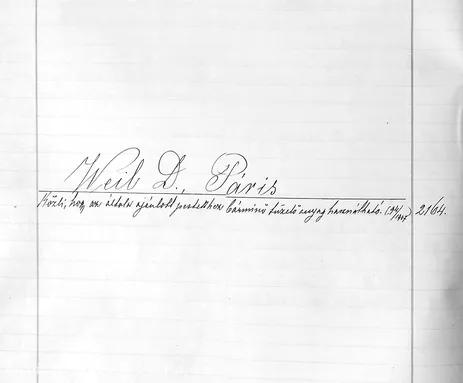 Weil D., Páris
Közli, hogy az általa ajánlott pestekhez bárminő tüzelő anyag használható. 2164.